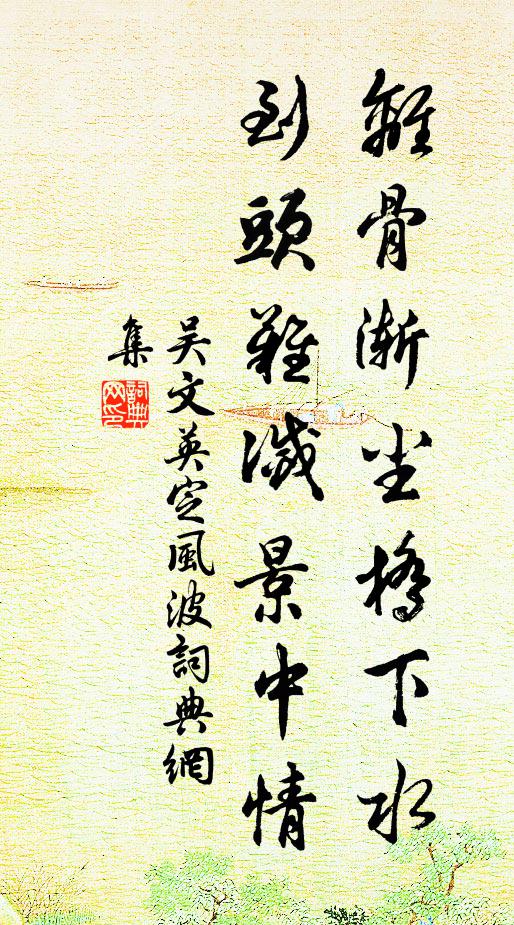 離骨漸塵橋下水
到頭難滅景中情
吴文英定風波詞典網
集
詞典
网印